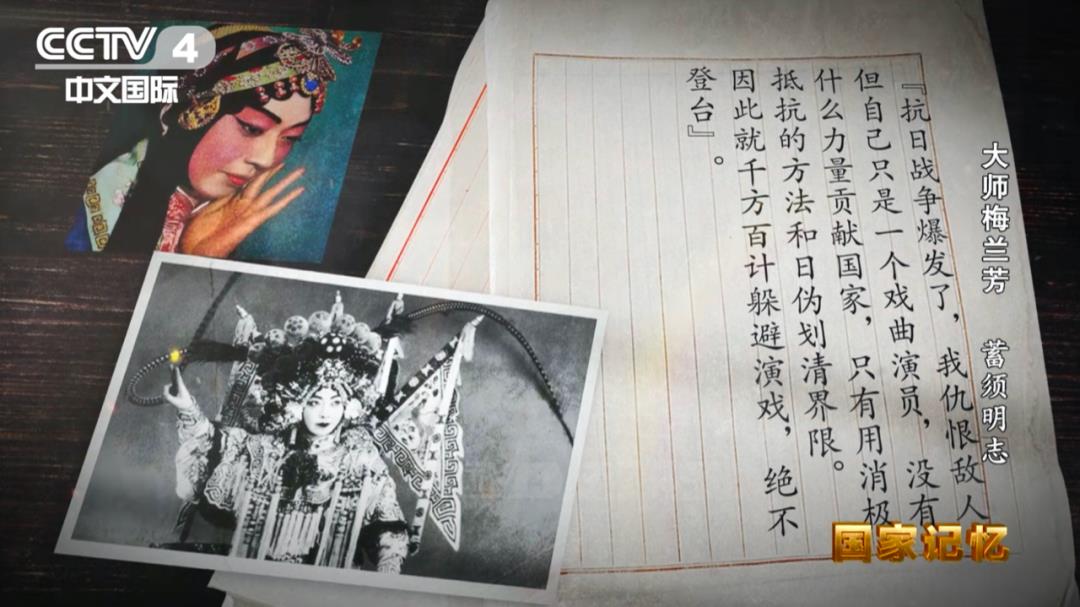 CCTV 4
中文国际
『抗日战争爆发了，我仇恨敌人
但自己只是一个戏曲演员，没有
什么力量贡献国家，只有用消极
抵抗的方法和日伪划清界限。
因此就千方百计躲避演戏，绝不
登台』。
大师梅兰芳 蓄须明志
国家记忆